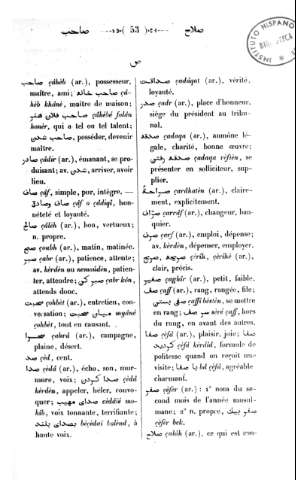 صاحب —( 53 )— صلاح
ص
صاحب çâhèb (ar.), possesseur,
maître, ami; صاحب خانه çâ-
hèb khânè, maître de maison;
صاحب فلان هنر çâhèbè folân
honèr, qui a tel ou tel talent;
صاحب شدن, posséder, devenir
maître.
صادر çâdèr (ar.), émanant, se pro-
duisant; av. شدن, avoir
lieu.
صاف çâf, simple, pur, intègre, —
صاف وصادق çâf o çâdèq, bon-
nêteté et loyauté.
صالح çâlèh (ar.), bon, vertueux;
n. propre.
صبح çoubh (ar.), matin, matinée.
صبر çabr (ar.), patience, attente;
av. kèrdèn ou nemoudèn, patien-
ter, attendre; صبر کن çabr kèn,
attends donc.
صحبت çohbèt (ar.), entretien, con-
versation; میان صحبت myânè
çohbèt, tout en causant.
صحرا çahrâ (ar.), campagne,
plaine, désert.
صد çèd, cent.
صدا çèdâ (ar.), écho, son, mur-
mure, voix; صدا کردن çèdâ
kèrdèn, appeler, héler, convo-
quer; صدای مهیب çèdâïè mo-
hîb, voix tonnante, terrifiante;
بصدای بلند bèçèdaï balènd, à
haute voix.
صداقت çadâqat (ar.), vérité,
loyauté.
صدر çadr (ar.), place d'honneur,
siège du président au tribu-
nal.
صدقه çadaqa (ar.), aumône lé-
gale, charité, bonne œuvre;
صدقه رفتن çadaqa rèftèn, se
présenter en solliciteur, sup-
plier.
صراحةً çarâhatèn (ar.), claire-
ment, explicitement.
صراف çarrâf (ar.), changeur, ban-
quier.
صرف çarf (ar.), emploi, dépense;
av. kèrdèn, dépenser, employer.
صریح, صریحه çèrîh, çèrîhè (ar.),
clair, précis.
صغیر çaghîr (ar.), petit, faible.
صف çaff (ar.), rang, rangée, file;
صف بستن çaff bèstèn, se mettre
en rang; سر صف sèrè çaff, hors
du rang, en avant des autres.
صفا çèfâ (ar.), plaisir, joie; صفا
کردید çèfâ kèrdîd, formule de
politesse quand on reçoit une
visite; با صفا bâ çèfâ, agréable
charmant.
صفر çèfèr (ar.): 1° nom du se-
cond mois de l'année musul-
mane; 2° n. propre, صفر بیك
çèfèr bek.
صلاح çalâh (ar.), ce qui est con-